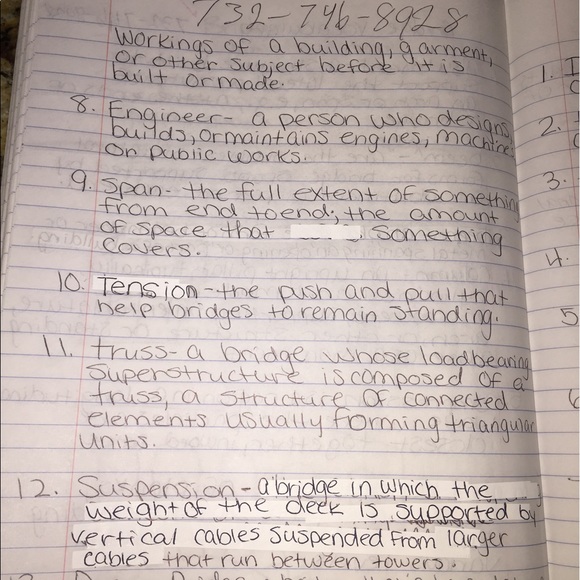 732-746-8928
Workings of a building, garment,
or other subject before it is
built or made.
8. Engineer- a person who designs,
builds, or maintains engines, machine
or public works.
9. Span- the full extent of somethin
from end to end; the amount
of space that something
covers.
10. Tension-the push and pull that
help bridges to remain standing.
11. truss- a bridge whose load bearing
superstructure is composed of a
truss, a structure of connected
elements usually forming triangular
units.
12. Suspension-a bridge in which the
weight of the deck is supported by
vertical cables suspended from larger
cables that run between towers.
1.
2.
3.
4.
5